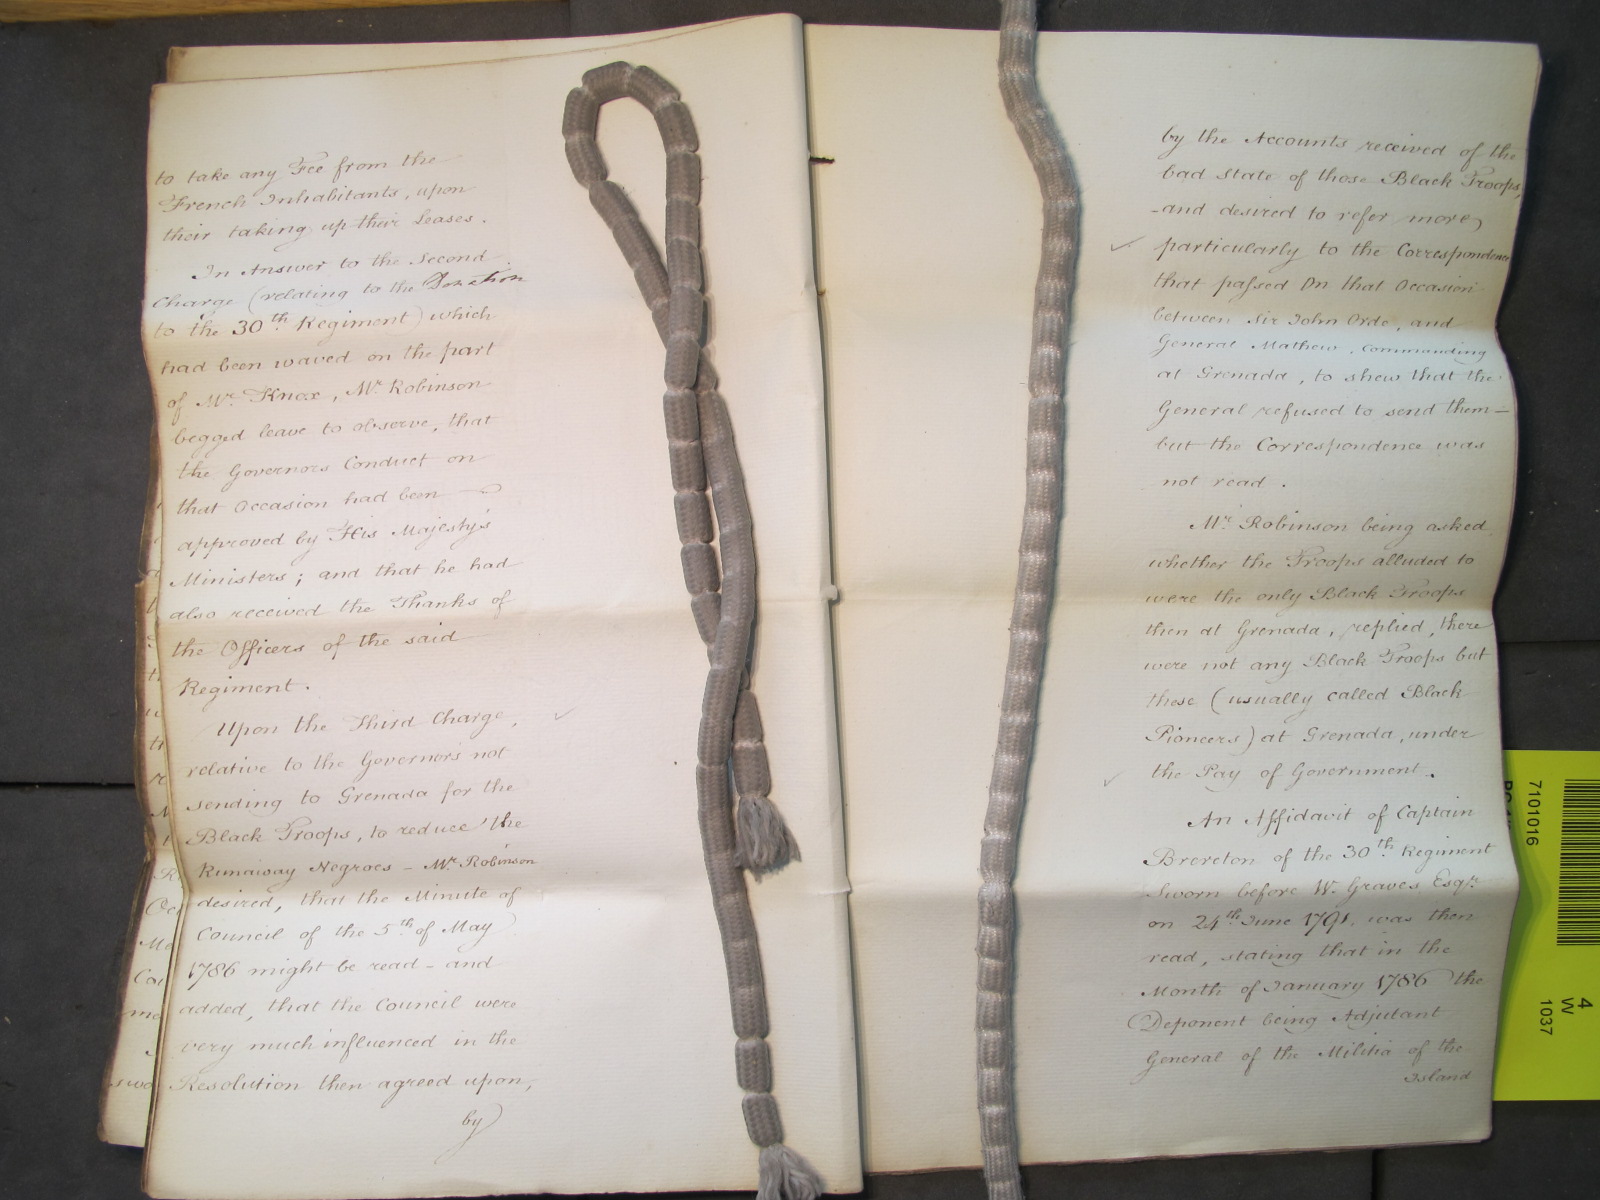 to take any Fee from the
French Inhabitants, upon
their taking up their Leases.
In Answer to the Second
Charge (relating to the Donation
to the 30th Regiment) which
had been waved on the part
of Mr. Knox, Mr. Robinson
begged leave to observe, that
the Governors Conduct on
that Occasion had been
approved by His Majesty's
Ministers; and that he had
also received the Thanks of
the Officers of the said
Regiment.
Upon the Third Charge,
relative to the Governor's not
sending to Grenada for the
Black Troops, to reduce the
Runaway Negroes - Mr. Robinson
desired, that the Minute of
Council of the 5th of May
1786 might be read - and
added, that the Council were
very much influenced in the
Resolution then agreed upon,
by
by the Accounts received of the
bad State of those Black Troops,
and desired to refer more
particularly to the Correspondence
that passed On that Occasion
between Sir John Orde, and
General Mathew, commanding
at Grenada, to shew that the
General refused to send them -
but the Correspondence was
not read.
Mr. Robinson being asked
whether the Troops alluded to
were the only Black Troops
then at Grenada, replied, there
were not any Black Troops but
these (usually called Black
Pioneers) at Grenada, under
the Pay of Government.
An Affidavit of Captain
Brereton of the 30th Regiment
Sworn before W. Graves Esqr.
on 24th June 1791, was then
read, stating that in the
Month of January 1786 the
Deponent being Adjutant
General of the Militia of the
Island
7101016
4
W
1037